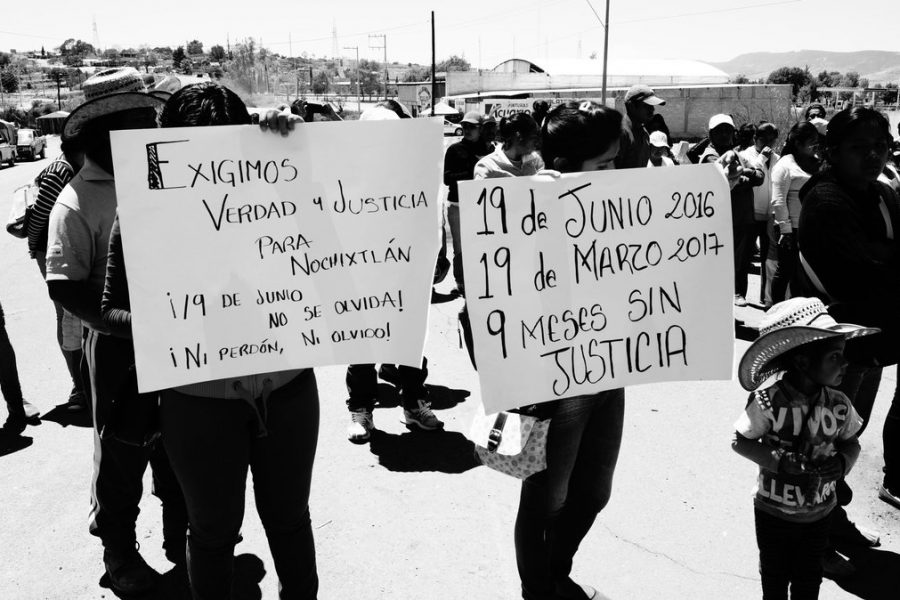 EXIGIMOS
VERDAD Y JUSTICIA
PARA
NOCHIXTLÁN
¡19 DE JUNIO
NO SE OLVIDA!
¡NI PERDÓN, NI OLVIDO!
19 de JUNIO 2016
19 de MARZO 2017
9 MESES SIN
JUSTICIA
VIVOS